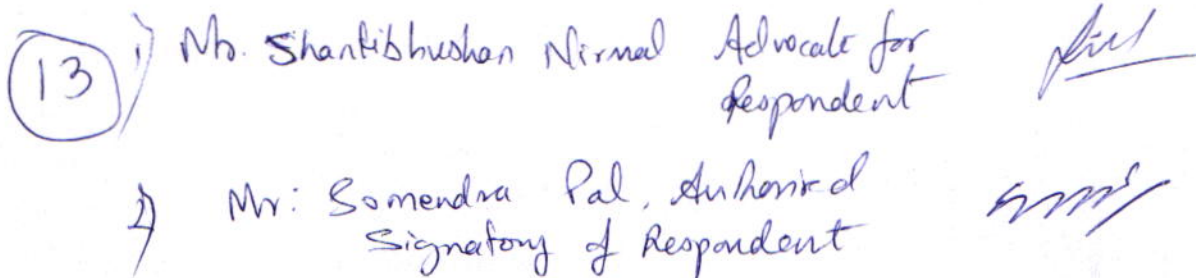 13
1) Mr. Shantibhushan Nirmal Advocate for
Respondent
2) Mr: Somendra Pal, Authorised
Signatory of Respondent